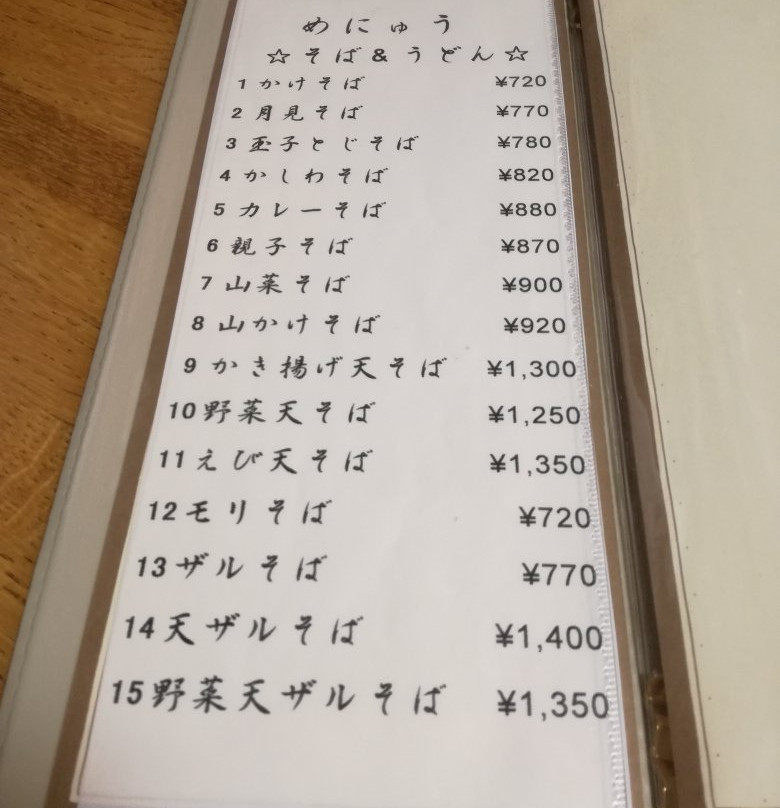 めにゅう
☆そば&うどん☆
1 かけそば ¥720
2 月見そば ¥770
3 玉子とじそば ¥780
4 かしわそば ¥820
5 カレーそば ¥880
6 親子そば ¥870
7 山菜そば ¥900
8 山かけそば ¥920
9 かき揚げ天そば ¥1,300
10 野菜天そば ¥1,250
11 えび天そば ¥1,350
12 モリそば ¥720
13 ザルそば ¥770
14 天ザルそば ¥1,400
15 野菜天ザルそば ¥1,350